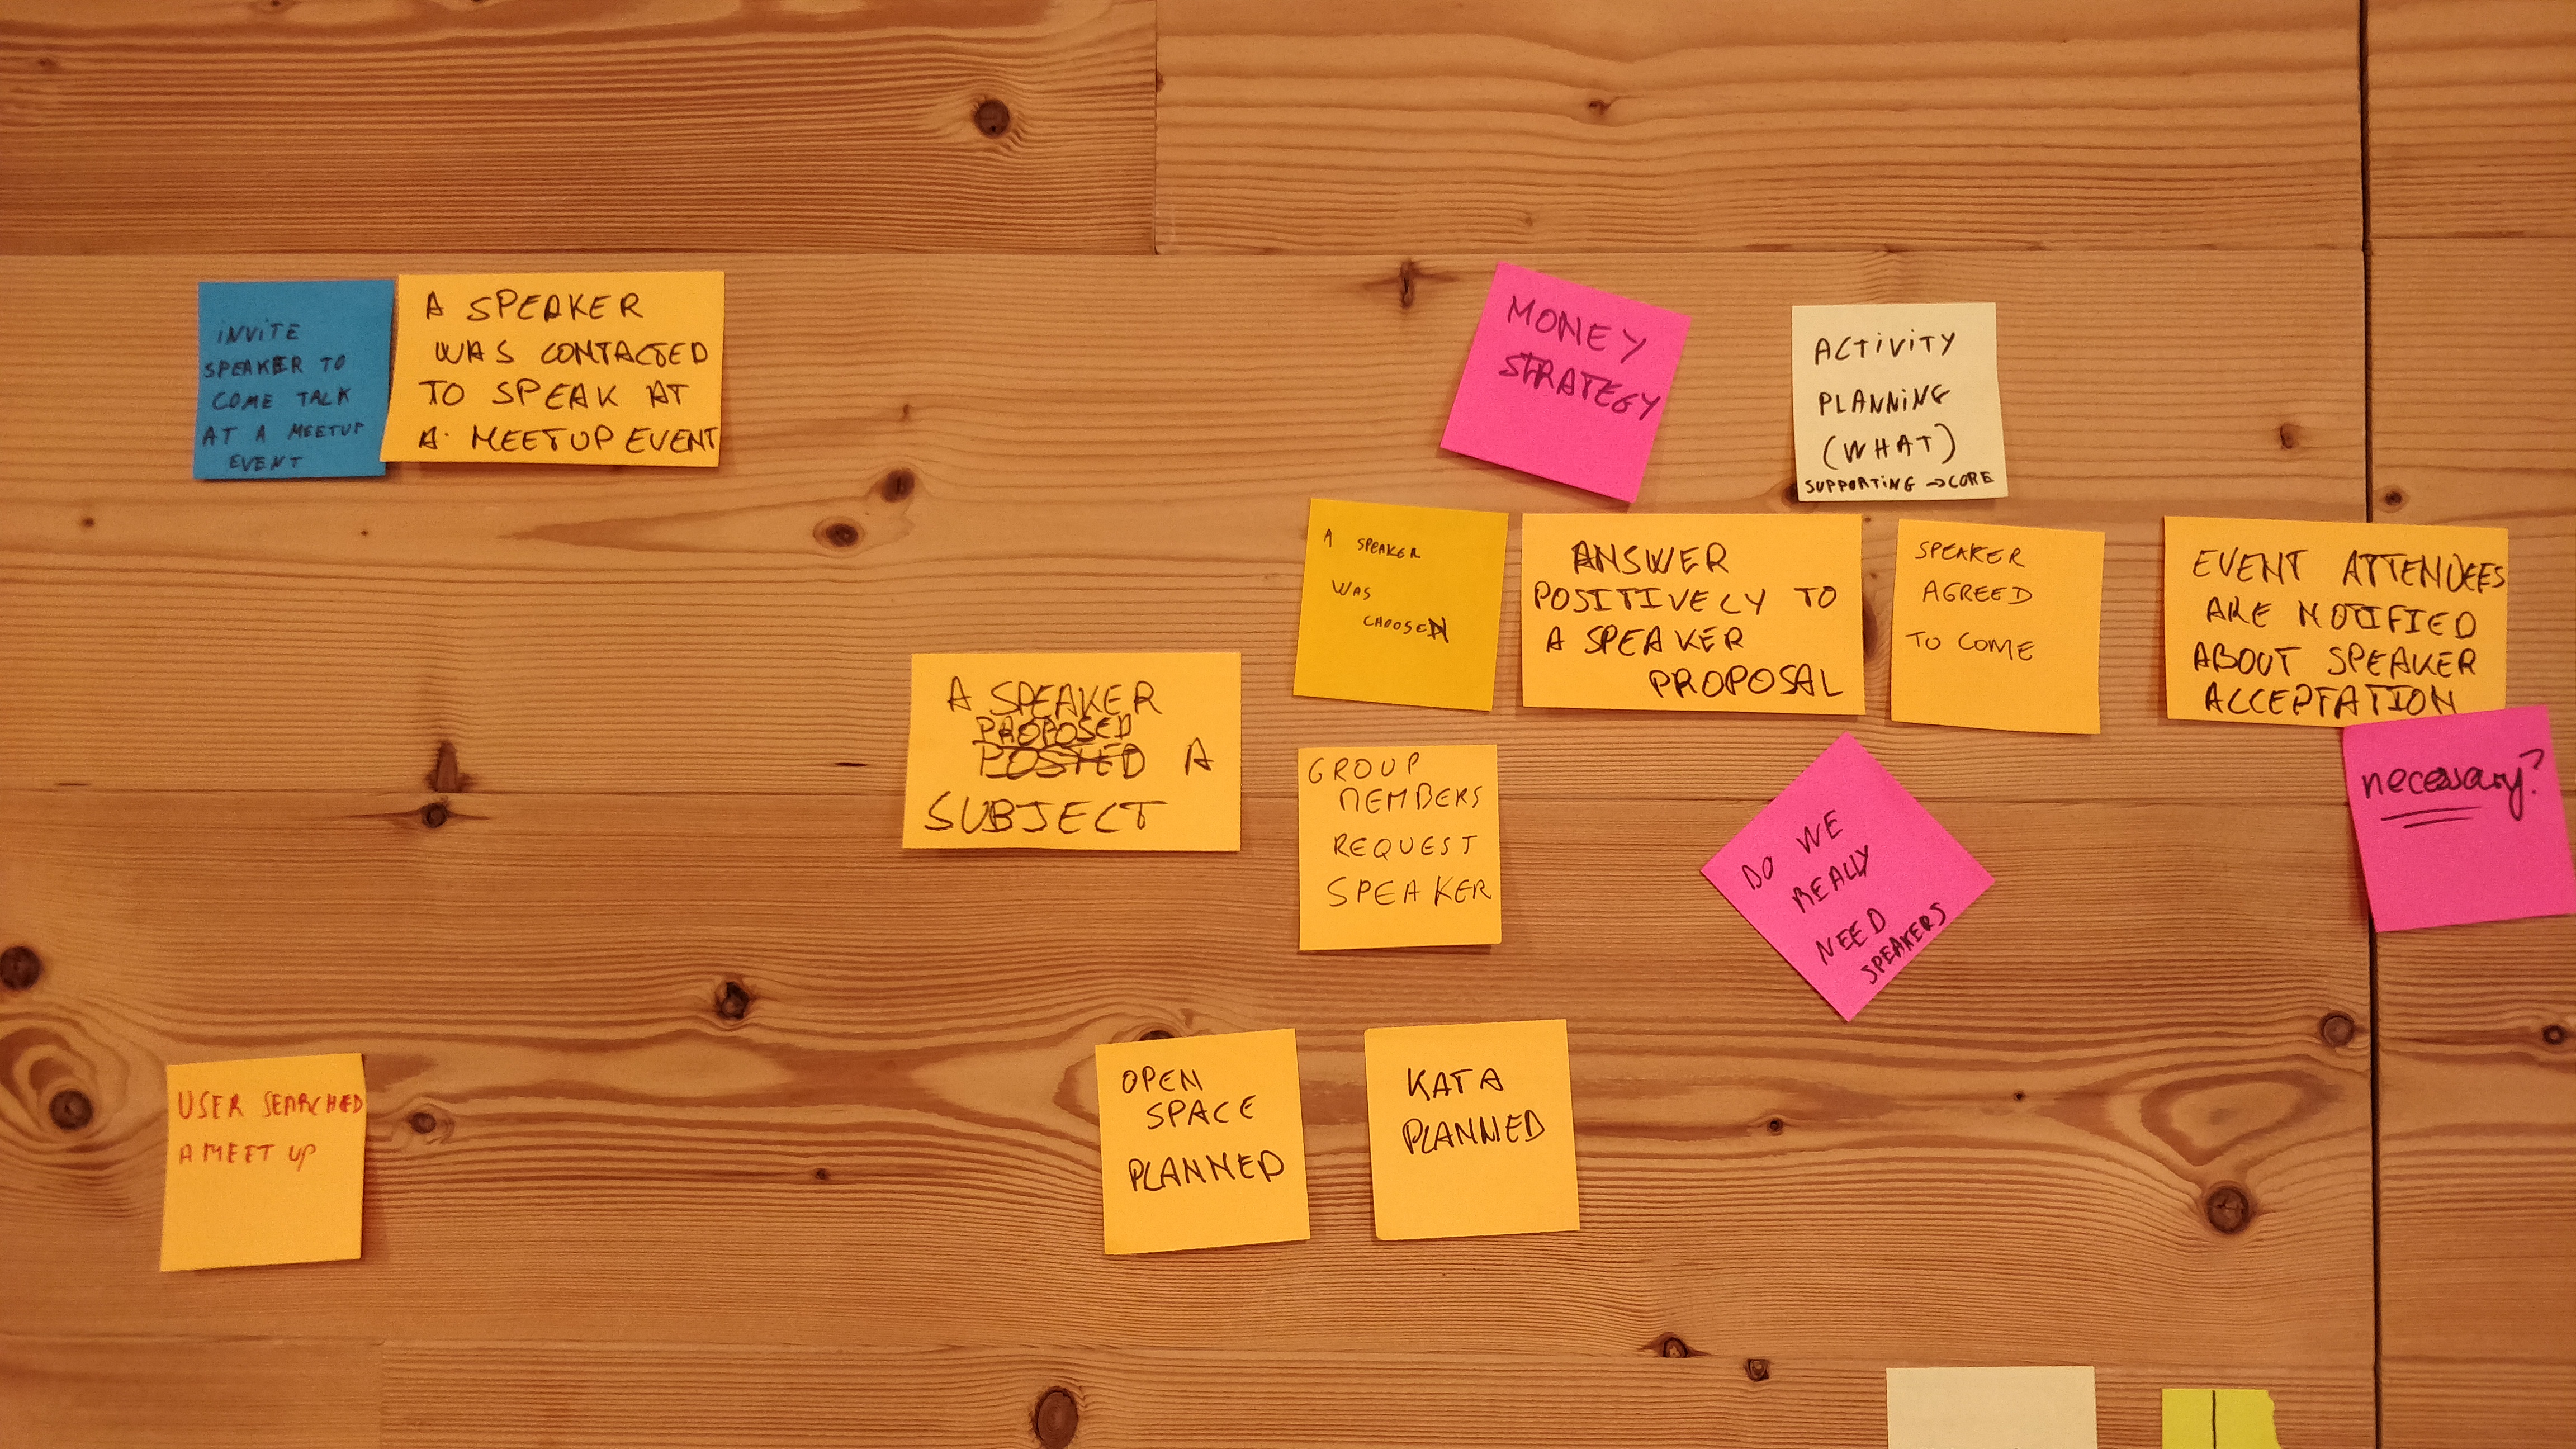 INVITE
SPEAKER TO
COME TALK
AT A MEETUP
EVENT
A SPEAKER
WAS CONTACTED
TO SPEAK AT
A MEETUP EVENT
MONEY
STRATEGY
ACTIVITY
PLANNING
(WHAT)
SUPPORTING → CORE
A SPEAKER
WAS
CHOOSEN
ANSWER
POSITIVELY TO
A SPEAKER
PROPOSAL
SPEAKER
AGREED
TO COME
EVENT ATTENDEES
ARE NOTIFIED
ABOUT SPEAKER
ACCEPTATION
necessary?
A SPEAKER
PROPOSED
POSTED A
SUBJECT
GROUP
MEMBERS
REQUEST
SPEAKER
DO WE
REALLY
NEED
SPEAKERS
USER SEARCHED
A MEET UP
OPEN
SPACE
PLANNED
KATA
PLANNED